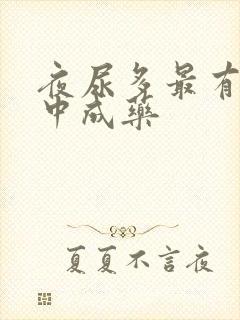 夜尿多最有
中成藥
夏夏不言夜